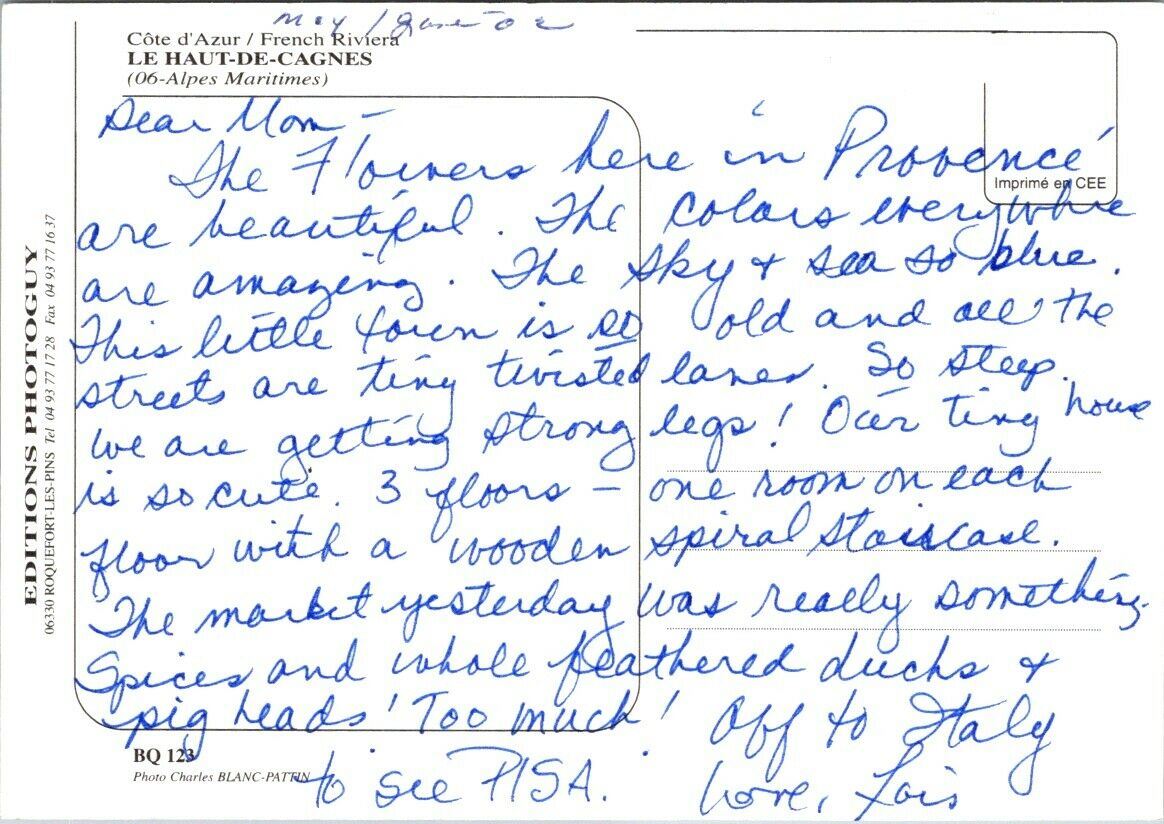 May / June 02
Côte d'Azur / French Riviera
LE HAUT-DE-CAGNES
(06-Alpes Maritimes)
Imprimé en CEE
EDITIONS PHOTOGUY
06330 ROQUEFORT-LES-PINS Tel 04 93 77 17 28 Fax 04 93 77 16 37
Dear Mom –
The Flowers here in Provencé
are beautiful. The colors everywhere
are amazing. The sky & sea so blue.
This little town is so old and all the
streets are tiny twisted lanes. So steep.
We are getting strong legs! Our tiny house
is so cute. 3 floors – one room on each
floor with a wooden spiral staiscase.
The market yesterday was really something.
Spices and whole feathered ducks &
pig heads! Too much! Off to Italy
to see PISA. Love, Lois
BQ 123
Photo Charles BLANC-PATTIN